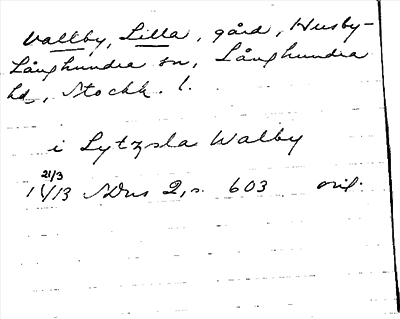 Vallby, Lilla, gård, Husby-
Långhundra sn, Långhundra
hd, Stockh. l.
i Lytzsla Walby
21/3
1413 SDns 2, s. 603 orig.